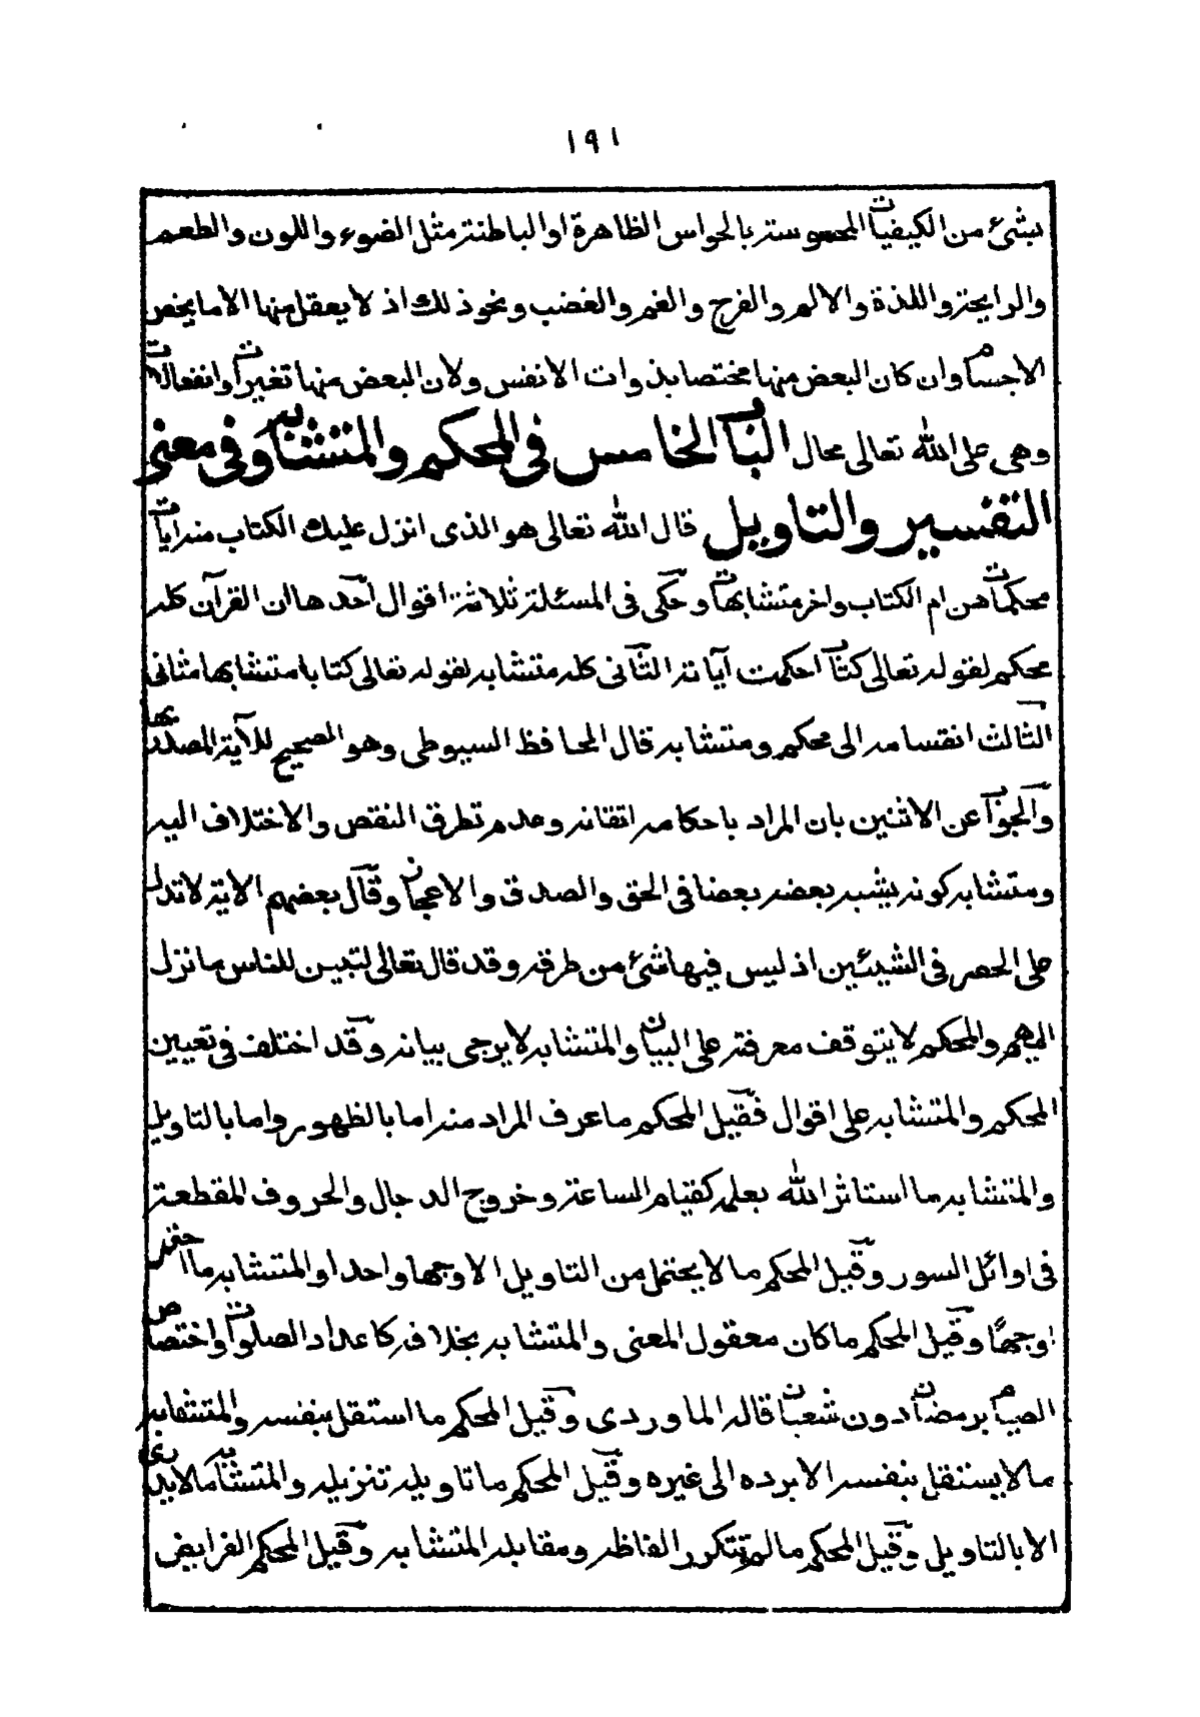 ١٩١
بشئ من الكيفيات المحسوسة بالحواس الظاهرة او الباطنة مثل الضوء واللون والطعم
والرايحة واللذة والالم والفرح والغم والغضب ونحو ذلك اذ لا يعقل منها الا ما يخص
الاجسام وان كان البعض منها مختصا بذوات الانفس ولان البعض منها تغيرات وانفعالات
وهى على الله تعالى محال الباب الخامس فى المحكم والمتشابه وفى معنى
التفسير والتاويل قال الله تعالى هو الذى انزل عليك الكتاب منه ايات
محكمات هن ام الكتاب واخر متشابهات وحكى فى المسئلة ثلاثة اقوال احدها ان القرآن كله
محكم لقوله تعالى كتاب احكمت آياته الثانى كله متشابه لقوله تعالى كتابا متشابها مثانى
الثالث انقسامه الى محكم ومتشابه قال الحافظ السيوطى وهو الصحيح للآية المصدر بها
والجواب عن الاثنين بان المراد باحكامه اتقانه وعدم تطرق النقص والاختلاف اليه
ومتشابه كونه يشبه بعضه بعضا فى الحق والصدق والاعجاز وقال بعضهم الاية لا تدل
على الحصر فى الشيئين اذ ليس فيها شئ من طرقه وقد قال تعالى لتبين للناس ما نزل
اليهم والمحكم لا يتوقف معرفته على البيان والمتشابه لا يرجى بيانه وقد اختلف فى تعيين
المحكم والمتشابه على اقوال فقيل المحكم ما عرف المراد منه اما بالظهور واما بالتاويل
والمتشابه ما استاثر الله بعلمه كقيام الساعة وخروج الدجال والحروف المقطعة
فى اوائل السور وقيل المحكم ما لا يحتمل من التاويل الا وجها واحدا والمتشابه ما احتمل
اوجها وقيل المحكم ما كان معقول المعنى والمتشابه بخلافه كاعداد الصلوات واختصاص
الصيام برمضان دون شعبان قاله الماوردى وقيل المحكم ما استقل بنفسه والمتشابه
ما لا يستقل بنفسه الا برده الى غيره وقيل المحكم ما تاويله تنزيله والمتشابه ما لا يدرى
الا بالتاويل وقيل المحكم ما لم تتكرر الفاظه ومقابله المتشابه وقيل المحكم الفرايض